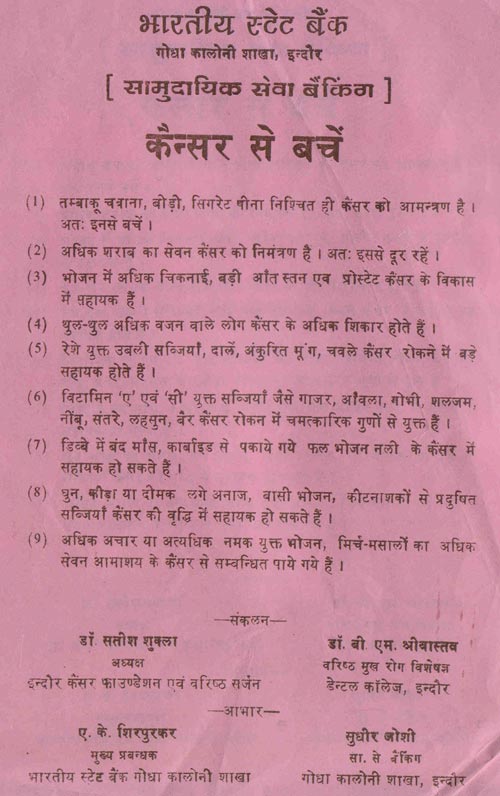 भारतीय स्टेट बैंक
गोधा कालोनी शाखा, इन्दौर
[ सामुदायिक सेवा बैंकिंग ]
कैन्सर से बचें
(1) तम्बाकू चबाना, बीड़ी, सिगरेट पीना निश्चित ही कैंसर को आमन्त्रण है ।
अतः इनसे बचें ।
(2) अधिक शराब का सेवन कैंसर को निमंत्रण है । अतः इससे दूर रहें ।
(3) भोजन में अधिक चिकनाई, बड़ी आंत स्तन एव प्रोस्टेट कैंसर के विकास
में सहायक हैं ।
(4) थुल-थुल अधिक वजन वाले लोग कैंसर के अधिक शिकार होते हैं ।
(5) रेशे युक्त उबली सब्जियाँ, दालें, अंकुरित मूंग, चवले कैंसर रोकने में बड़े
सहायक होते हैं ।
(6) विटामिन ‘ए’ एवं ‘सी’ युक्त सब्जियाँ जैसे गाजर, आंवला, गोभी, शलजम,
नींबू, संतरे, लहसुन, बैर कैंसर रोकन में चमत्कारिक गुणों से युक्त हैं ।
(7) डिब्बे में बंद माँस, कार्बाइड से पकाये गये फल भोजन नली के कैंसर में
सहायक हो सकते हैं ।
(8) घुन, कीड़ा या दीमक लगे अनाज, बासी भोजन, कीटनाशकों से प्रदुषित
सब्जियाँ कैंसर की वृद्धि में सहायक हो सकते हैं ।
(9) अधिक अचार या अत्यधिक नमक युक्त भोजन, मिर्च-मसालों का अधिक
सेवन आमाशय के कैंसर से सम्बन्धित पाये गये हैं ।
—संकलन—
डॉ. सतीश शुक्ला
अध्यक्ष
इन्दौर कैंसर फाउण्डेशन एवं वरिष्ठ सर्जन
डॉ. बी. एम. श्रीवास्तव
वरिष्ठ मुख रोग विशेषज्ञ
डेन्टल कॉलेज, इन्दौर
—आभार—
ए. के. शिरपुरकर
मुख्य प्रबन्धक
भारतीय स्टेट बैंक गोधा कालोनी शाखा
सुधीर जोशी
सा. से बैंकिंग
गोधा कालोनी शाखा, इन्दौर